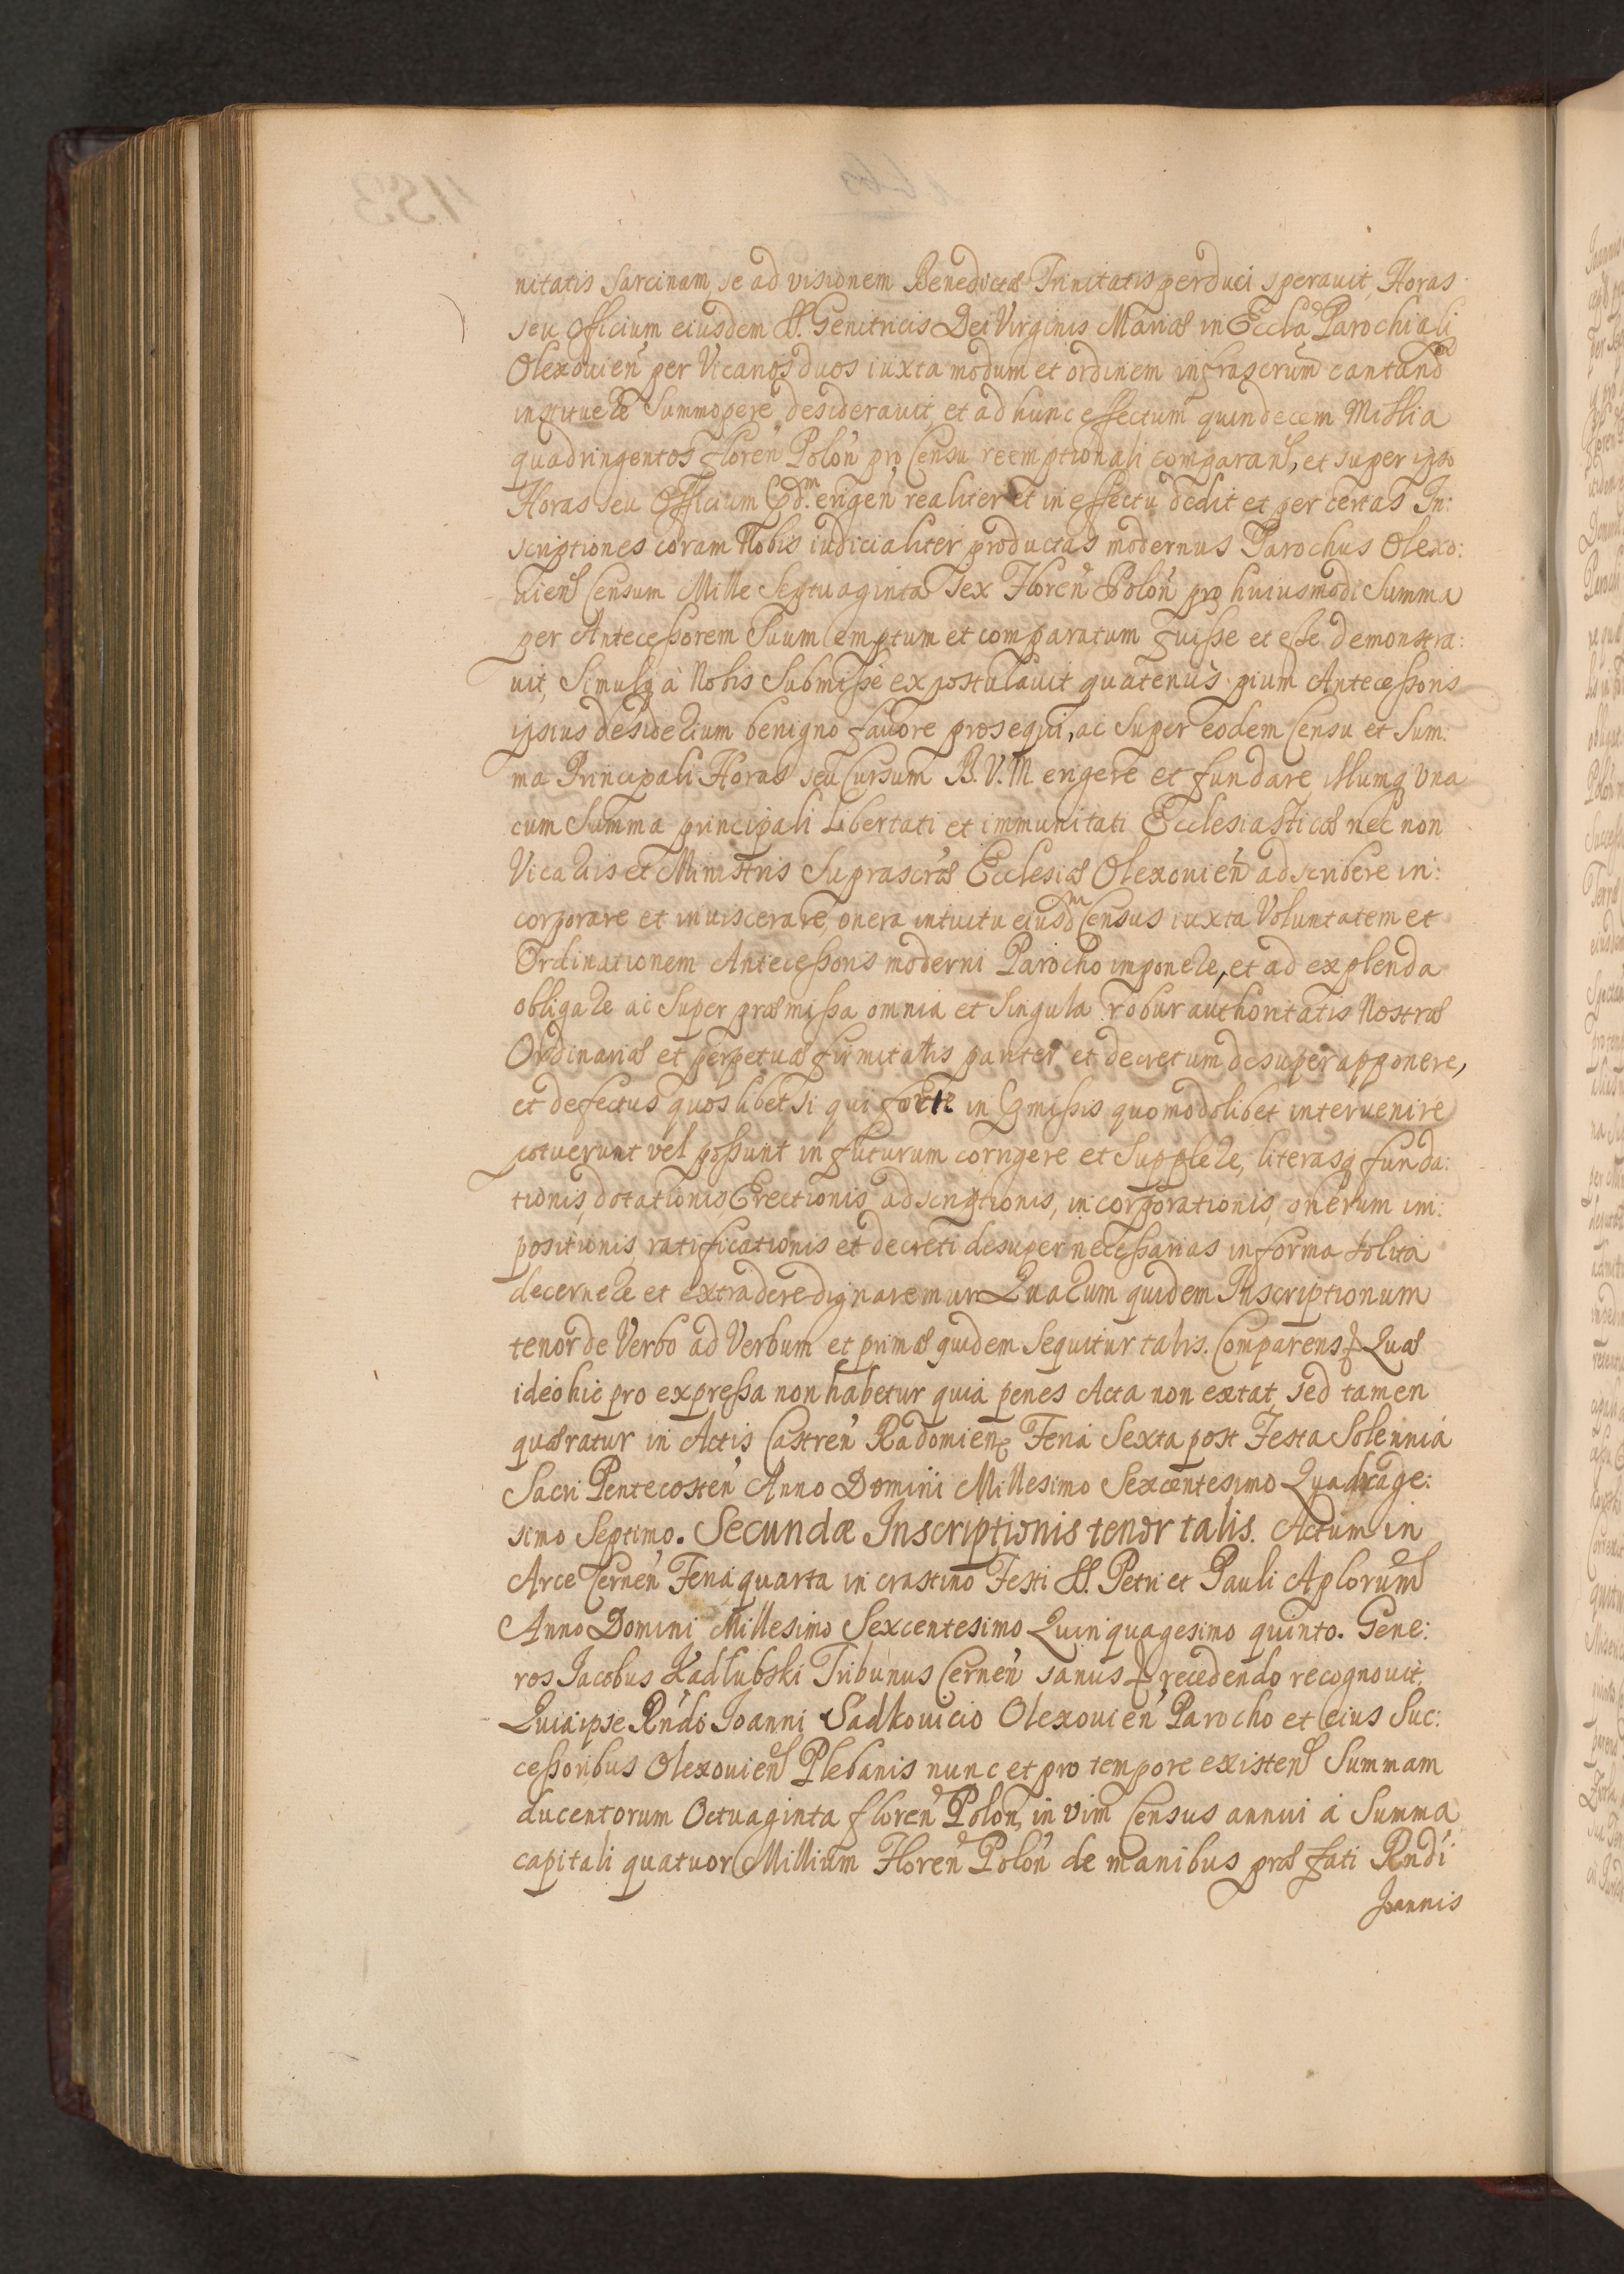 nitatis sarcinam, se ad visionem Benedictæ Trinitatis perduci sperauit, Horas
seu Officium eiusdem SS. Genitricis Dei Virginis Mariæ in Eccła Parochiali
Olexouień per Vicarios duos iuxta modum et ordinem infrascrum cantand
instituere Summopere desiderauit, et ad hunc effectum quindecem Millia
quadringentos floreń Poloń pro Censu reemptionali comparań, et super ipso
Horas seu Officium pd.m erigeń realiter et in effectu dedit et per certas In:
scriptiones coram Nobis iudicialiter productas modernus Parochus Olexo:
uień Censum Mille Septuaginta sex Floreń Poloń pro huiusmodi Summa
per Antecessorem Suum emptum et comparatum fuisse et esse demonstra:
uit, Simulq à Nobis Submisse expostulauit quatenus pium Antecessoris
ipsius desiderium benigno fauore prosequi, ac super eodem Censu et Sum:
ma Principali Horas seu Cursum B. V. M. erigere et fundare, illumq vna
cum Summa principali Libertati et immunitati Ecclesiasticæ nec non
Vicariis et Ministris Suprascrǽ Ecclesiæ Olexouień adscribere in:
corporare et inuiscerare, onera intuitu eiusdm Census iuxta Voluntatem et
Ordinationem Antecessoris moderni Parocho imponere, et ad explenda
obligare ac super præmissa omnia et singula robur authoritatis Nostræ
Ordinariæ et perpetuæ firmitatis pariter et decretum desuper apponere,
et defectus quoslibet si qui forte in pmissis quomodolibet interuenire
potuerunt vel possunt in futurum corrigere et supplere, literasq funda:
tionis, dotationis Erectionis adscriptionis, incorporationis, onerum im:
positionis, ratificationis et decreti desuper necessarias in forma solita
decernere et extradere dignaremur. Quarum quidem Inscriptionum
tenor de Verbo ad Verbum et primæ quidem sequitur talis. Comparens & Quæ
ideo hic pro expressa non habetur quia penes Acta non extat, sed tamen
quæratur in Actis Castreń Radomień Feria Sexta post Festa Solennia
Sacri Pentecosteń Anno Domini Millesimo Sexcentesimo Quadrage:
simo Septimo. Secundæ Inscriptionis tenor talis. Actum in
Arce Cerneń Feria quarta in crastino Festi SS. Petri et Pauli Aplorum
Anno Domini Millesimo Sexcentesimo Quinquagesimo quinto. Gene:
ros Jacobus Kadłubski Tribunus Cerneń sanus & recedendo recognouit,
Quia ipse Rńdo Joanni Sadkouicio Olexouień Parocho et eius Suc:
cessoribus Olexouień Plebanis nunc et pro tempore existeń Summam
ducentorum Octuaginta floreń Poloń, in vim Census annui à Summa
capitali quatuor Millium Floreń Poloń de manibus præfati Rńdi
Joannis